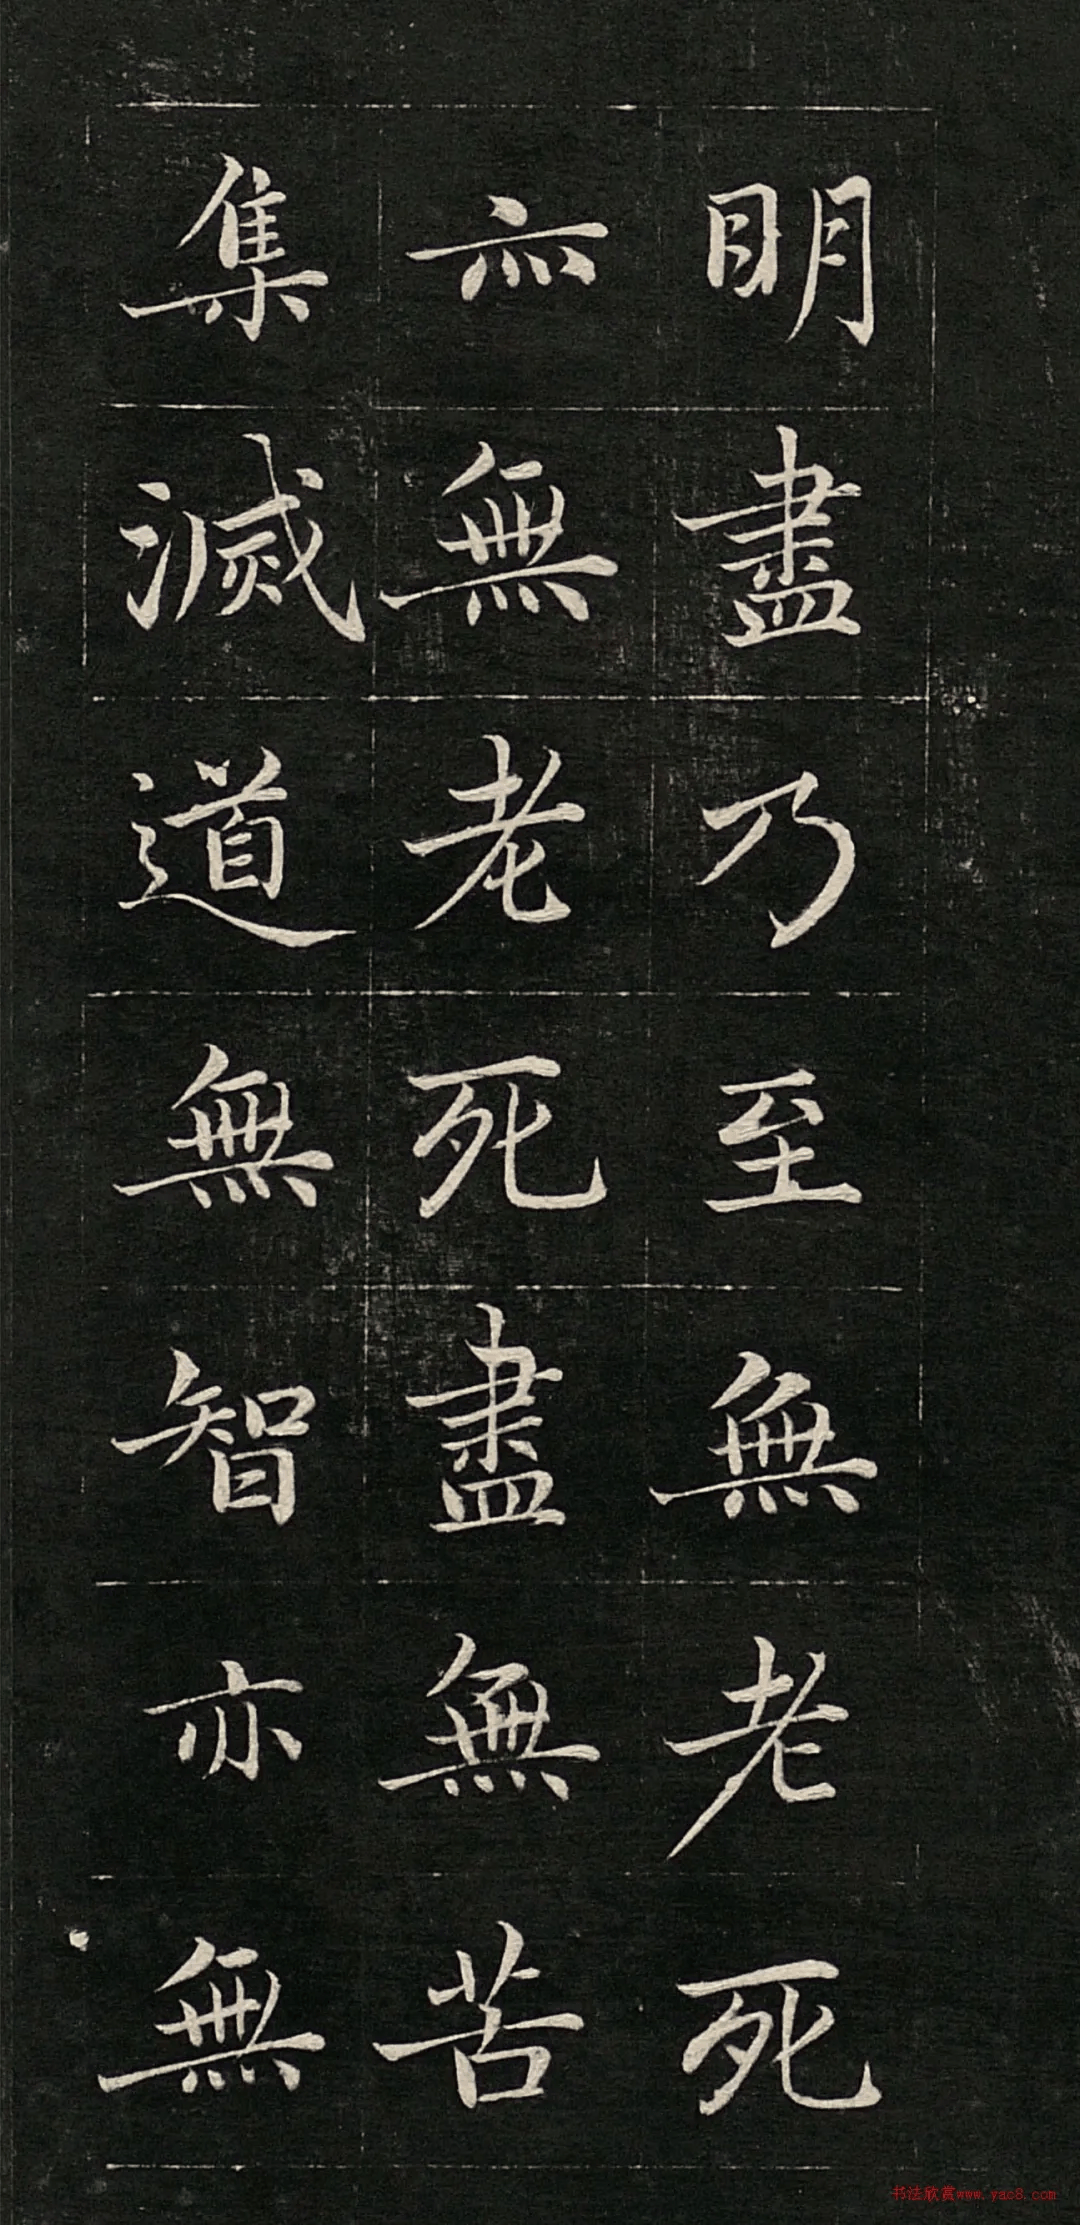 明盡乃至無老死
亦無老死盡無苦
集滅道無智亦無
书法欣赏www.yac8.com